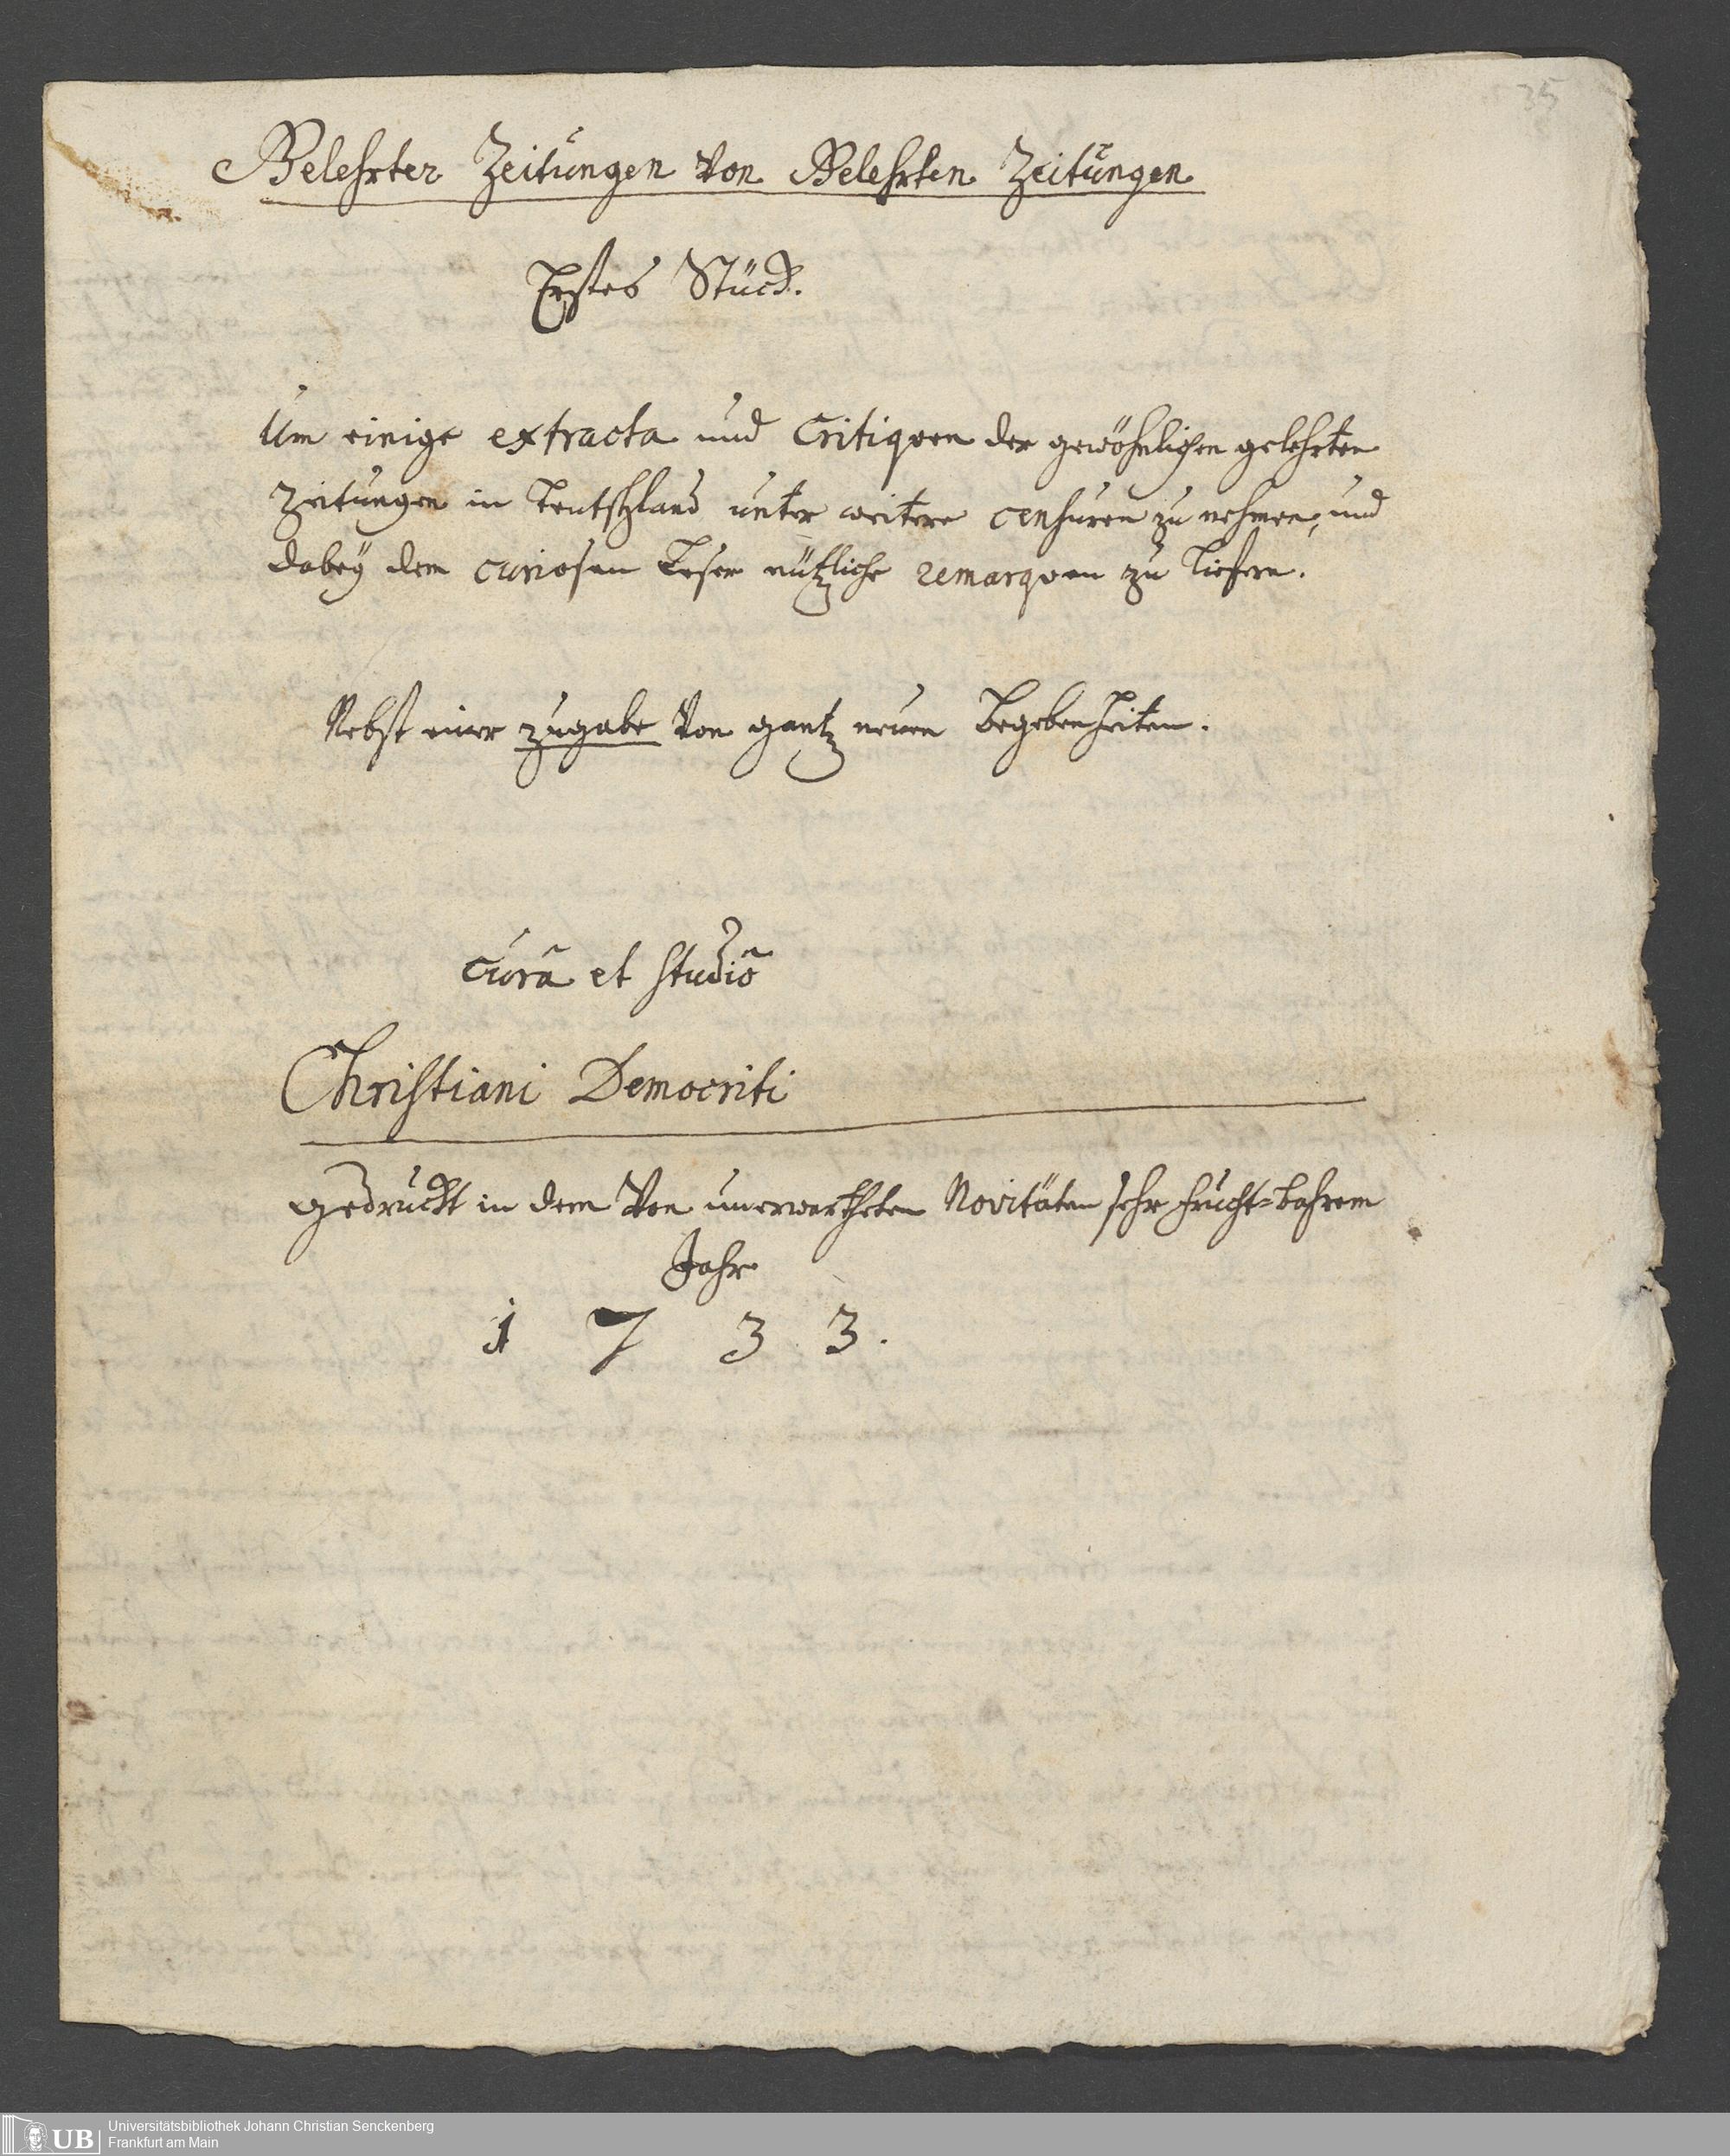 35
Gelehrter Zeitungen Von Gelehrten Zeitungen
Erstes Stück.
Um einige extracta und Critiquen der gewöhnlichen gelehrten
Zeitungen in Teutschland unter weitere censuren zu nehmen, und
dabey dem curiosen Leser nützliche remarquen zu liefern.
Nebst einer zugabe Von gantz neuen Begebenheiten.
Curâ et studiô
Christiani Democriti
gedruckt in dem Von unerwartheten Novitäten sehr frucht=bahrem
Jahr
1 7 3 3.
UB Universitätsbibliothek Johann Christian Senckenberg
Frankfurt am Main